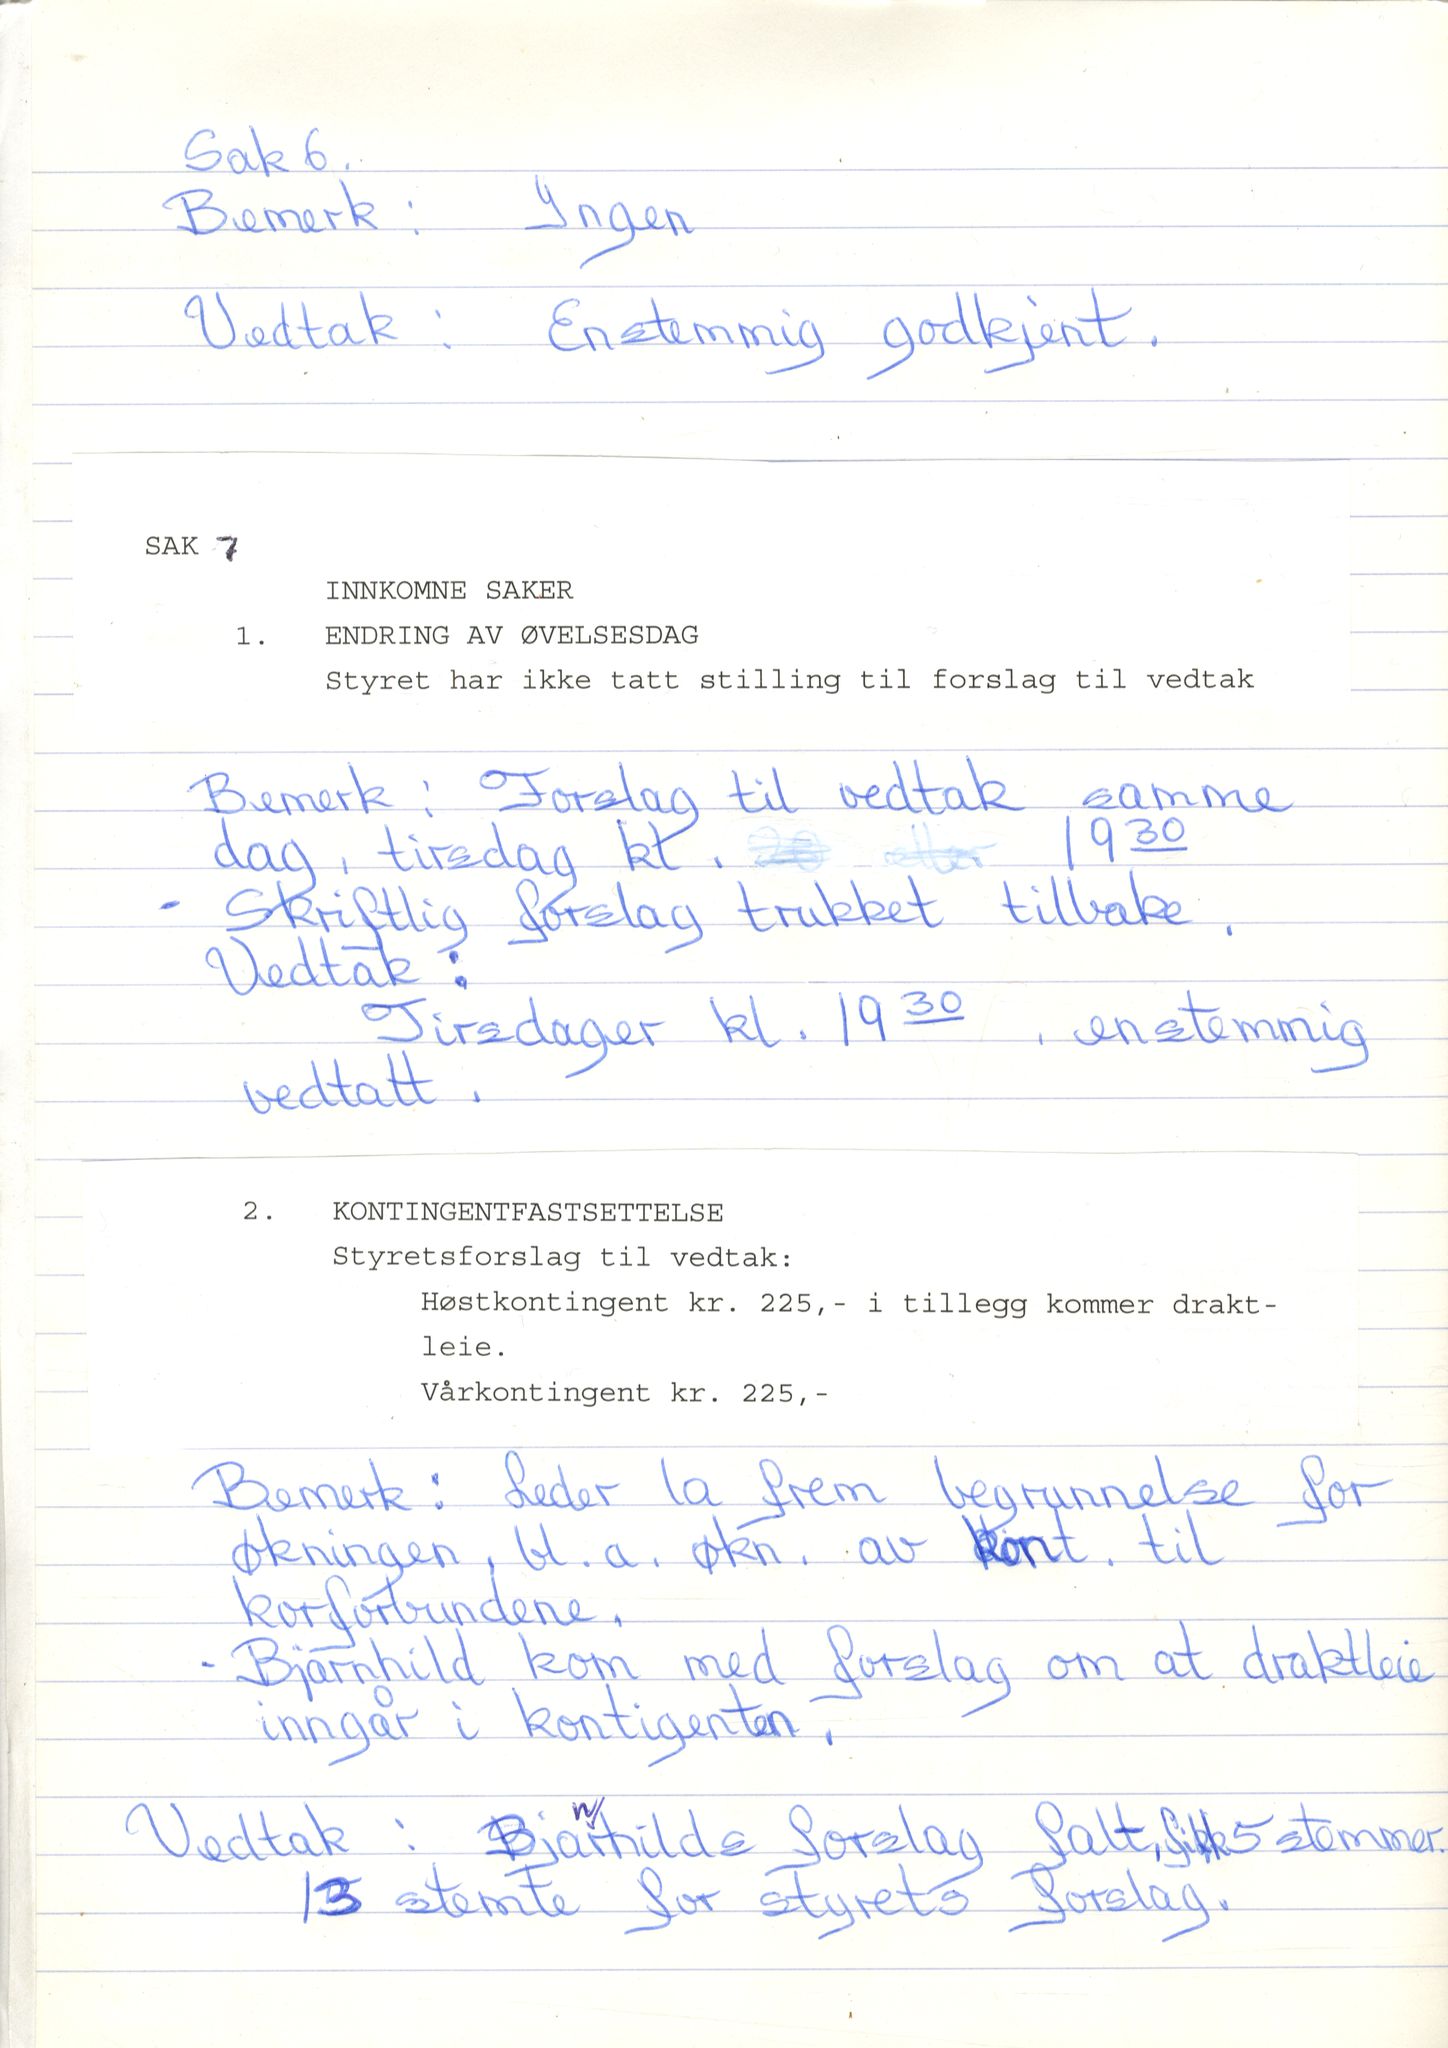 Sak 6.
Bemerk: Ingen
Vedtak: Enstemmig godkjent.
SAK 7
INNKOMNE SAKER
1. ENDRING AV ØVELSESDAG
Styret har ikke tatt stilling til forslag til vedtak
Bemerk: Forslag til vedtak samme
dag, tirsdag kl. 19 30
- Skriftlig forslag trukket tilbake.
Vedtak:
Tirsdager kl. 19 30, enstemmig
vedtatt.
2. KONTINGENTFASTSETTELSE
Styretsforslag til vedtak:
Høstkontingent kr. 225,- i tillegg kommer drakt-
leie.
Vårkontingent kr. 225,-
Bemerk: Leder la frem begrunnelse for
økningen, bl.a. økn. av kont. til
korforbundene.
- Bjarnhild kom med forslag om at draktleie
inngår i kontigenten.
Vedtak: Bjarnhilds forslag falt, fikk 5 stemmer.
13 stemte for styrets forslag.